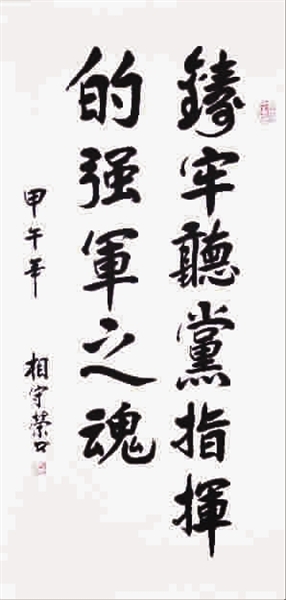 鑄牢聽黨指揮
的强軍之魂
甲午年 相守榮